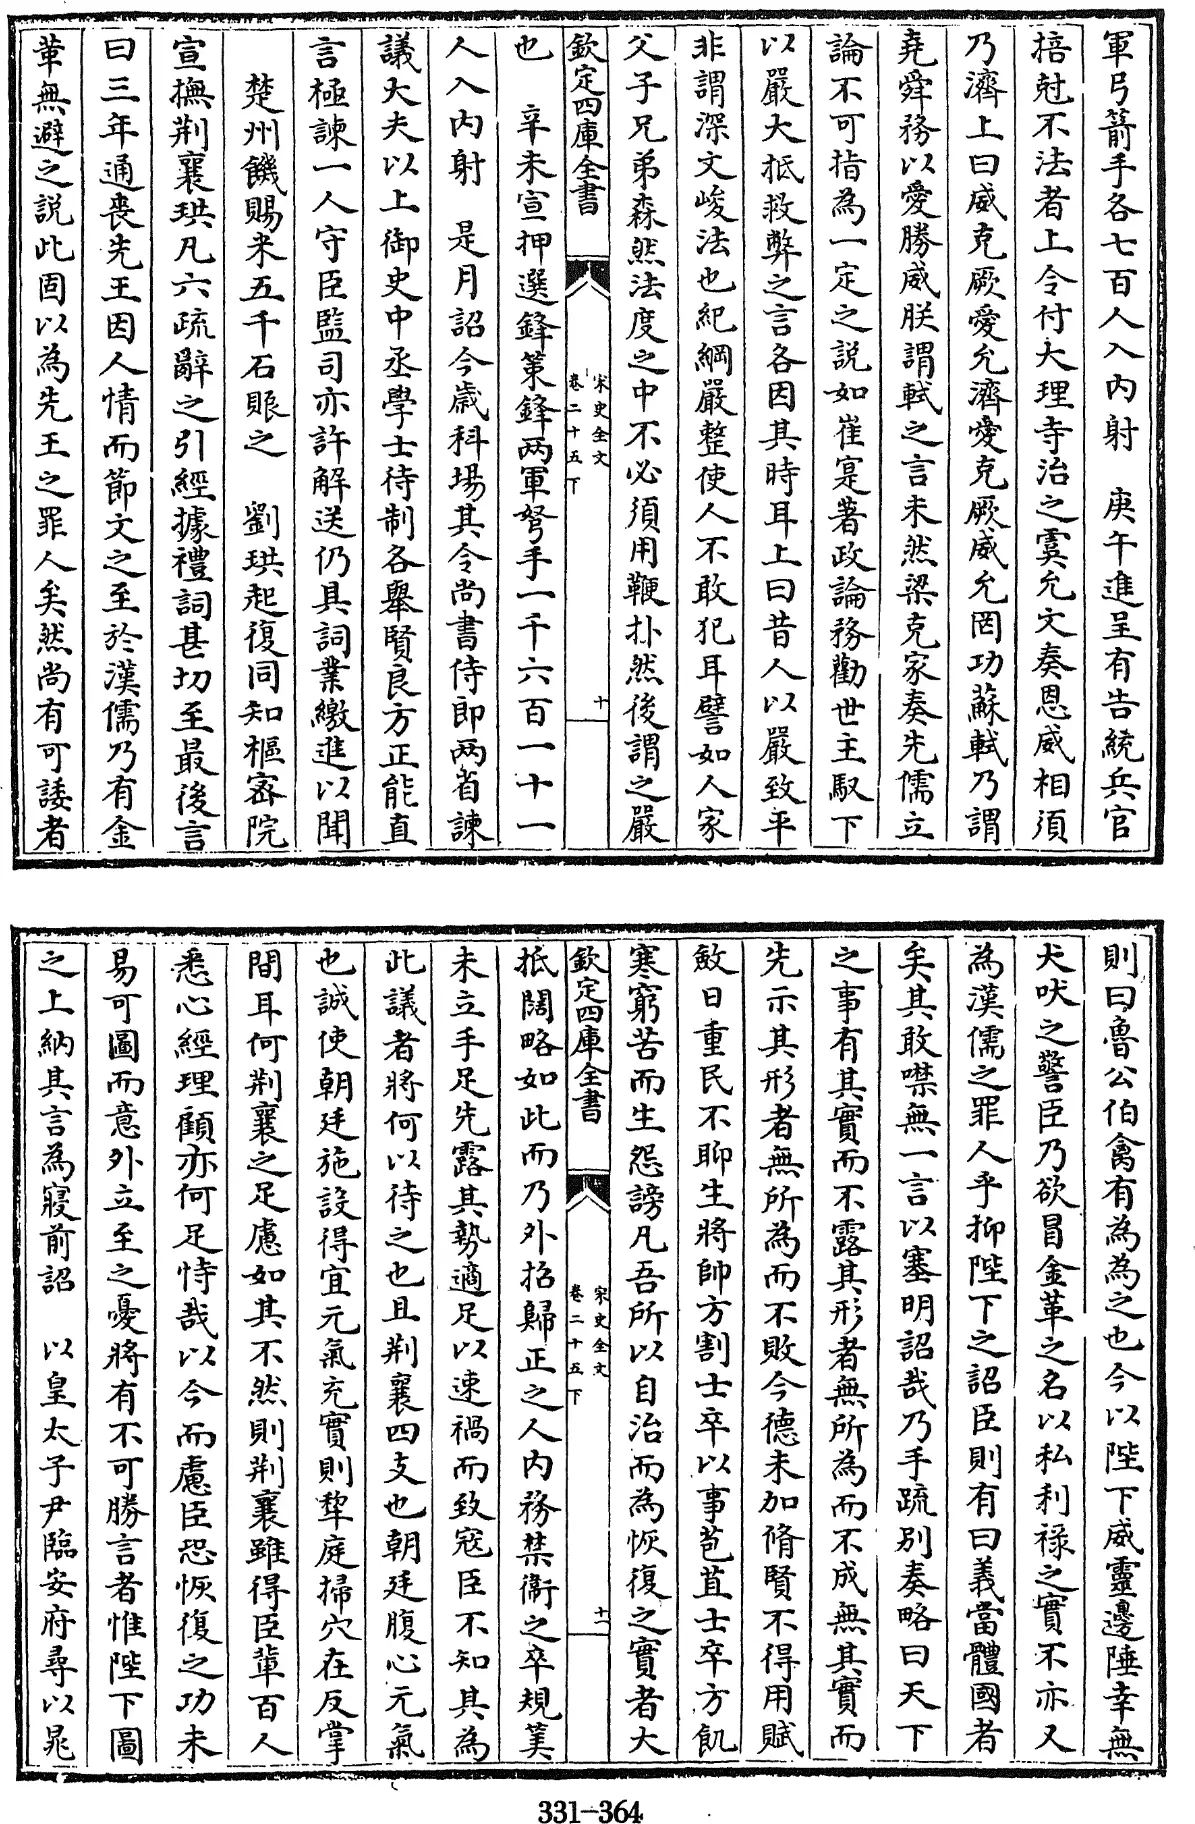 軍弓箭手各七百人入内射　庚午進呈有告統兵官
掊尅不法者上令付大理寺治之虞允文奏恩威相須
乃濟上曰威克厥愛允濟愛克厥威允罔功蘇軾乃謂
堯舜務以愛勝威朕謂軾之言未然梁克家奏先儒立
論不可指為一定之説如崔寔著政論務勸世主馭下
以嚴大抵救弊之言各因其時耳上曰昔人以嚴致平
非謂深文峻法也紀綱嚴整使人不敢犯耳譬如人家
父子兄弟森然法度之中不必須用鞭扑然後謂之嚴
欽定四庫全書
宋史全文
卷二十五下
十
也　辛未宣押選鋒策鋒两軍弩手一千六百一十一
人入内射　是月詔今歳科場其令尚書侍郎两省諫
議大夫以上御史中丞學士待制各舉賢良方正能直
言極諫一人守臣監司亦許解送仍具詞業繳進以聞
楚州饑賜米五千石賑之　劉珙起復同知樞宻院
宣撫荆襄珙凡六疏辭之引經據禮詞甚切至最後言
曰三年通喪先王因人情而節文之至於漢儒乃有金
革無避之説此固以為先王之罪人矣然尚有可諉者
則曰魯公伯禽有為為之也今以陛下威靈邊陲幸無
犬吠之警臣乃欲冒金革之名以私利禄之實不亦又
為漢儒之罪人乎抑陛下之詔臣則有曰義當體國者
矣其敢噤無一言以塞明詔哉乃手疏别奏略曰天下
之事有其實而不露其形者無所為而不成無其實而
先示其形者無所為而不敗今德未加脩賢不得用賦
斂日重民不聊生將帥方割士卒以事苞苴士卒方飢
寒窮苦而生怨謗凡吾所以自治而為恢復之實者大
欽定四庫全書
宋史全文
卷二十五下
十一
抵闊略如此而乃外招歸正之人内務禁衞之卒規筭
未立手足先露其勢適足以速禍而致寇臣不知其為
此議者將何以待之也且荆襄四支也朝廷腹心元氣
也誠使朝廷施設得宜元氣充實則犂庭掃穴在反掌
間耳何荆襄之足慮如其不然則荆襄雖得臣軰百人
悉心經理顧亦何足恃哉以今而慮臣恐恢復之功未
易可圖而意外立至之憂將有不可勝言者惟陛下圖
之上納其言為寢前詔　以皇太子尹臨安府尋以晁
331-364